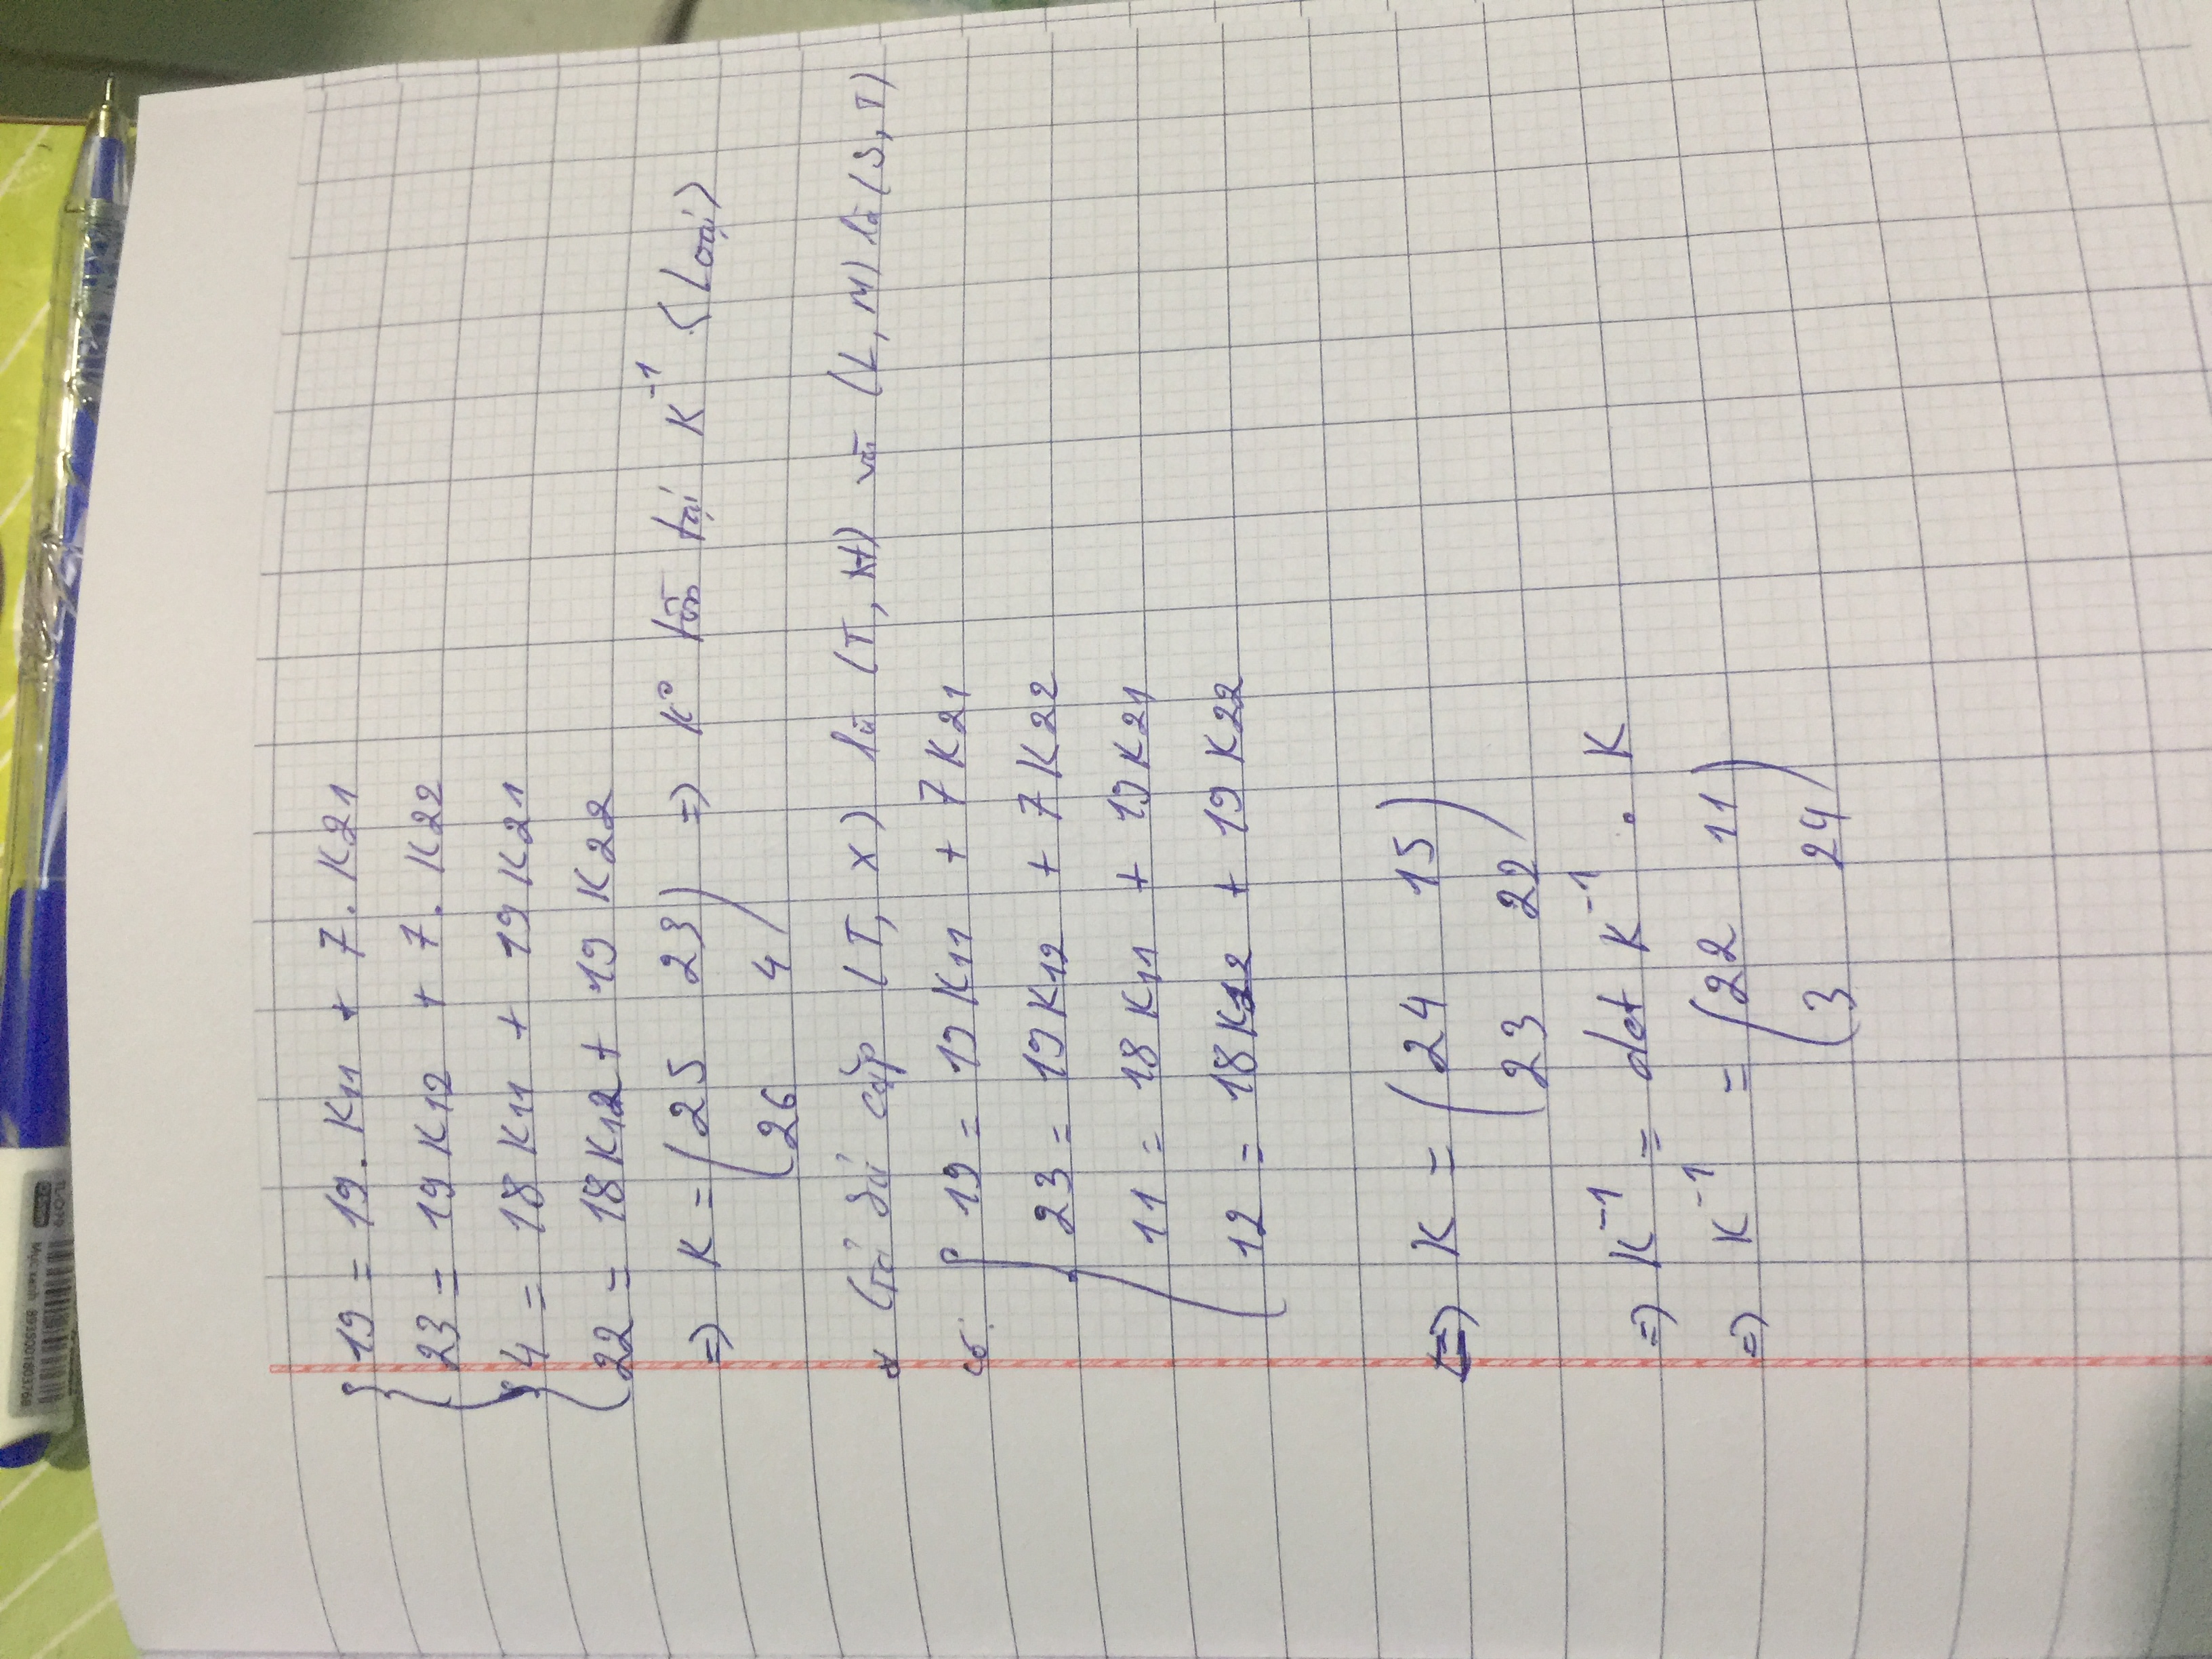 Mực xanh 8935001803768
TL-079
19 = 19. K11 + 7. K21
23 = 19 K12 + 7. K22
4 = 18 K11 + 19 K21
22 = 18 K12 + 19 K22
=> K = ( 25 23
26 4 ) => K° tồn tại K^-1 (Loại)
* Giả sử cặp (T, X) là (T, H) và (L, M) là (S, T)
có: 19 = 19 K11 + 7 K21
23 = 19 K12 + 7 K22
11 = 18 K11 + 19 K21
12 = 18 K12 + 19 K22
=> K = ( 24 15
23 22 )
=> K^-1 = det K^-1 . K
=> K^-1 = ( 22 11
3 24 )